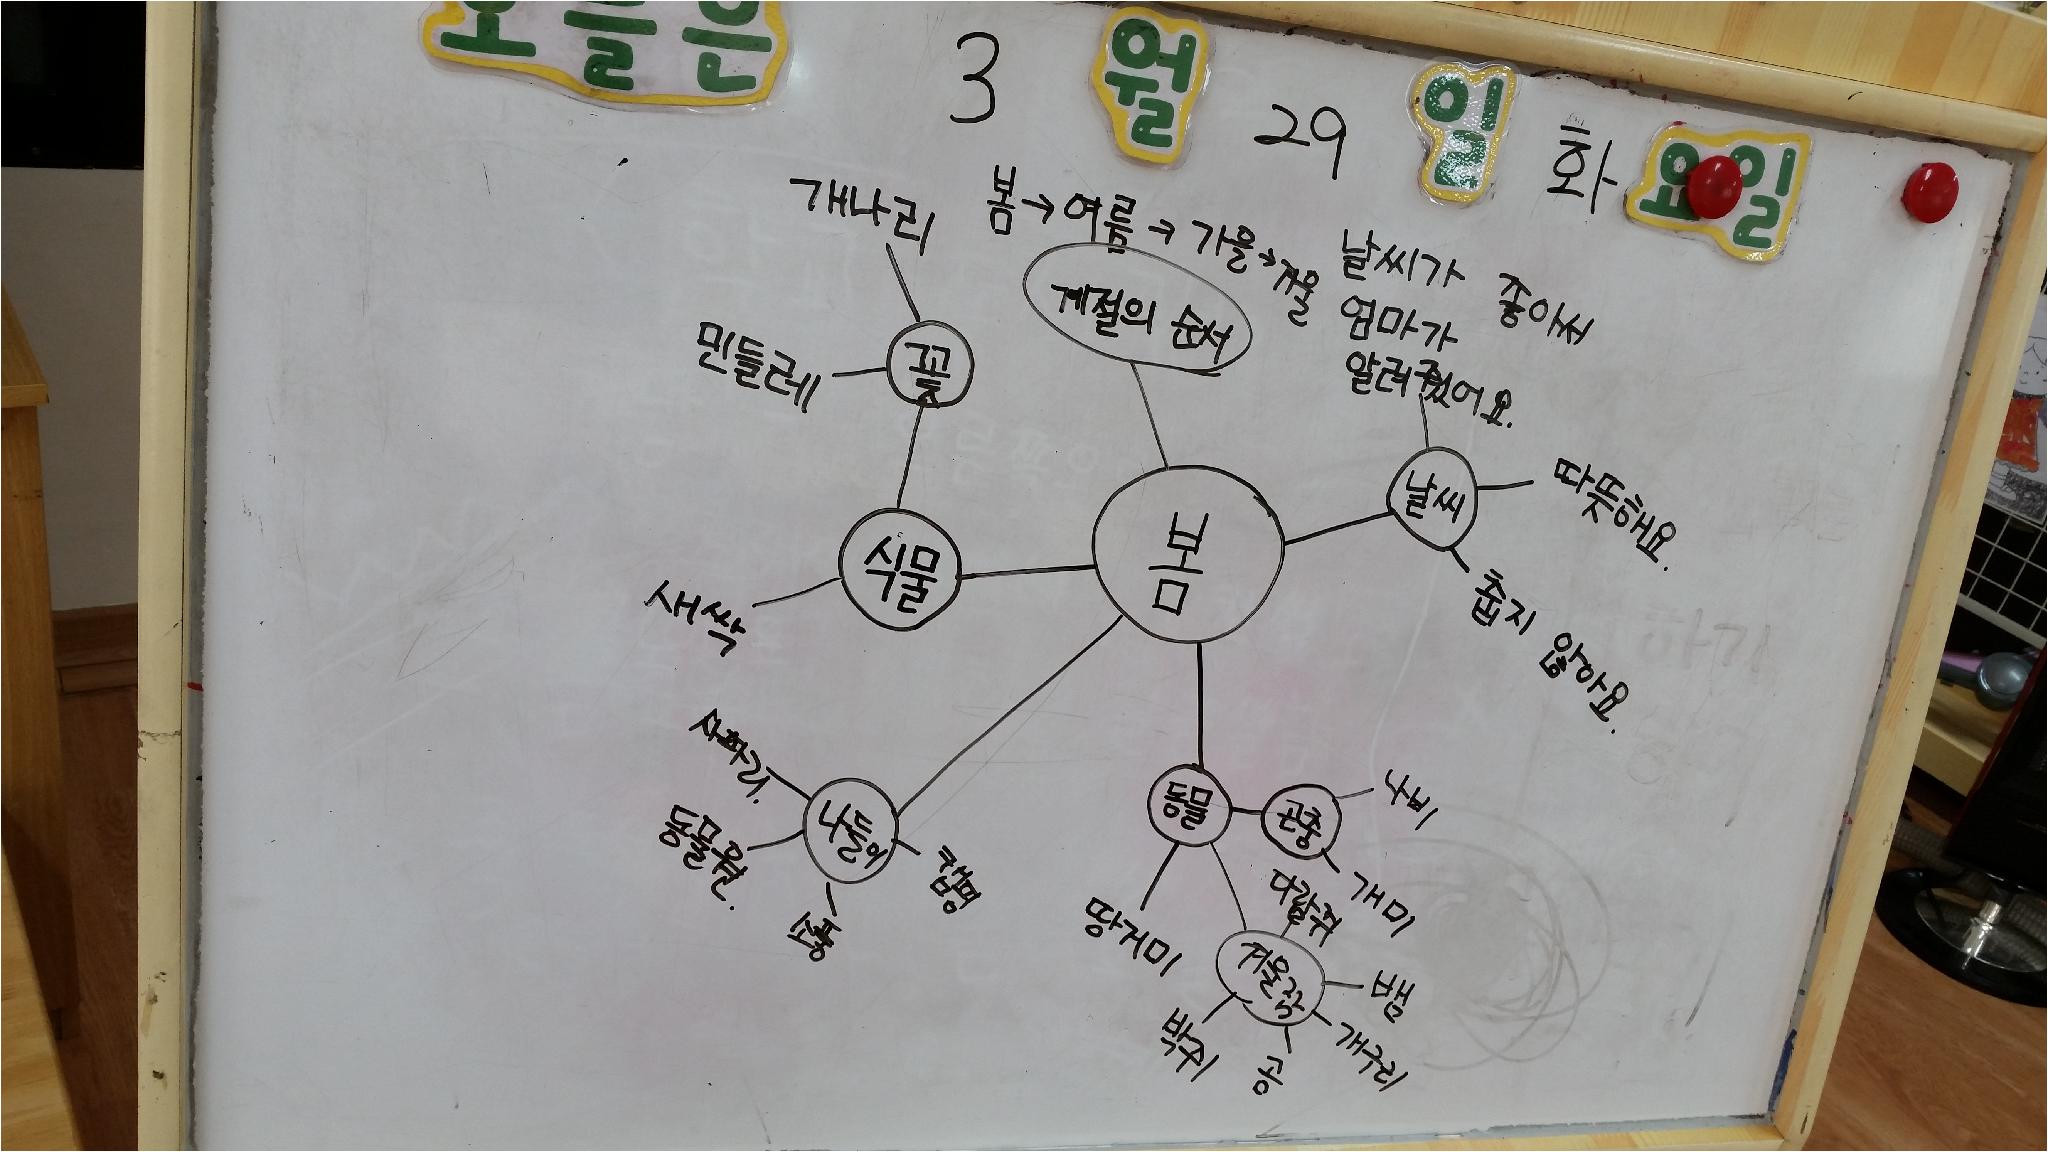 오늘은 3 월 29 일 화 요일
봄→여름→가을→겨울
계절의 순서
날씨가 좋아서
엄마가
알려줬어요.
개나리
민들레
꽃
식물
새싹
봄
날씨
따뜻해요.
춥지 않아요.
사파리.
동물원.
나들이
소풍
캠핑
동물
곤충
나비
개미
땅거미
겨울잠
다람쥐
뱀
개구리
곰
박쥐